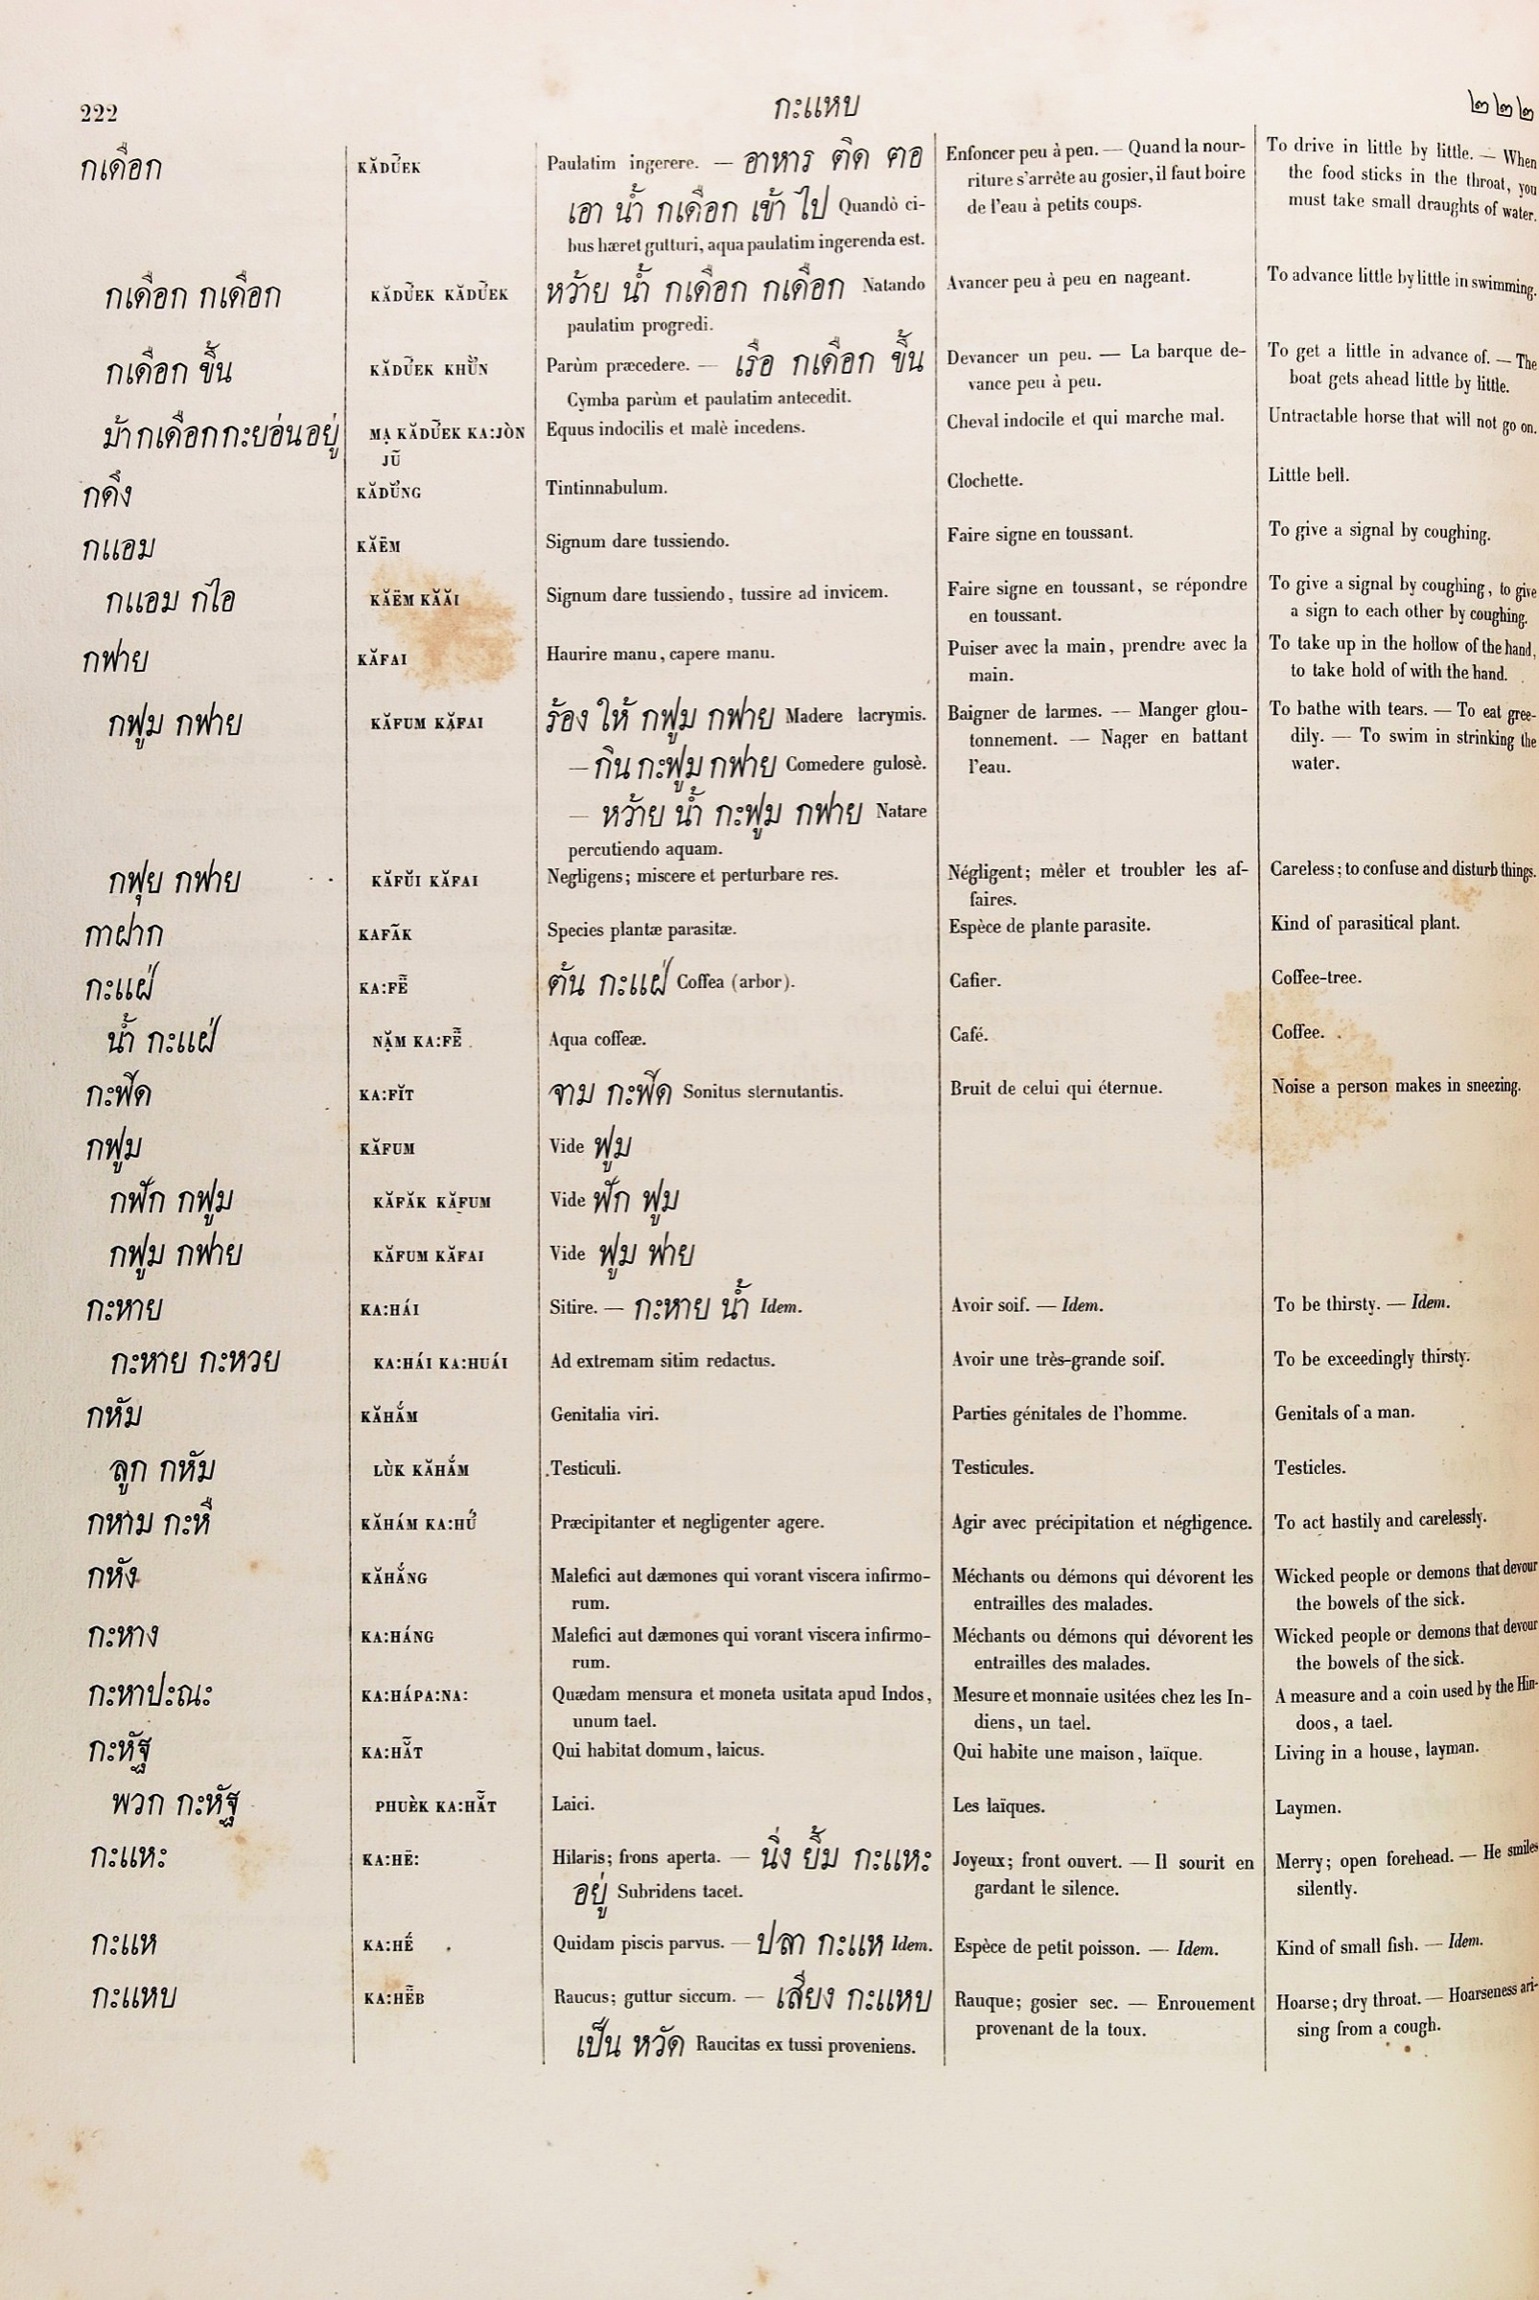 222 กะแหบ ๒๒๒
กเดือก KĂDU᷃EK Paulatim ingerere. — อาหาร ติด ฅอ Enfoncer peu à peu. — Quand la nour- To drive in little by little. — When
เอา น้ำ กเดือก เข้า ไป Quandò ci- riture s'arrête au gosier, il faut boire the food sticks in the throat, you
bus hæret gutturi, aqua paulatim ingerenda est. de l'eau à petits coups. must take small draughts of water.
กเดือก กเดือก KĂDU᷃EK KĂDU᷃EK หว้าย น้ำ กเดือก กเดือก Natando Avancer peu à peu en nageant. To advance little by little in swimming.
paulatim progredi.
กเดือก ขึ้น KĂDU᷃EK Parùm præcedere. — เรือ กเดือก ขึ้น Devancer un peu. — La barque de- To get a little in advance of. — The
Cymba parùm et paulatim antecedit. vance peu à peu. boat gets ahead little by little.
ม้ากเดือกกะยอ่นอยู่ MẠ KĂDU᷃EK KA:JÒN Equus indocilis et malè incedens. Cheval indocile et qui marche mal. Untractable horse that will not go on.
JŨ
กดึง Tintinnabulum. Clochette. Little bell.
กแอม KĂËM Signum dare tussiendo. Faire signe en toussant. To give a signal by coughing.
กแอม กไอ KĂËM KĂĂI Signum dare tussiendo, tussire ad invicem. Faire signe en toussant, se répondre To give a signal by coughing, to give
en toussant. a sign to each other by coughing.
กฟาย KĂFAI Haurire manu, capere manu. Puiser avec la main, prendre avec la To take up in the hollow of the hand,
main. to take hold of with the hand.
กฟูม กฟาย KĂFUM KĂFAI ร้อง ให้ กฟูม กฟาย Madere lacrymis. Baigner de larmes. — Manger glou- To bathe with tears. — To eat gree-
— กิน กะฟูม กฟาย Comedere gulosè. tonnement. — Nager en battant dily. — To swim in strinking the
— หว้าย น้ำ กะฟูม กฟาย Natare l'eau. water.
percutiendo aquam.
กฟุย กฟาย KĂFŬI KĂFAI Negligens; miscere et perturbare res. Négligent; mêler et troubler les af- Careless; to confuse and disturb things.
faires.
กาฝาก KAFÃK Species plantæ parasitæ. Espèce de plante parasite. Kind of parasitical plant.
กะแฝ่ ต้น กะแฝ่ Coffea (arbor). Cafier. Coffee-tree.
น้ำ กะแฝ่ Aqua coffeæ. Café. Coffee.
กะฟืด KA:FĬT จาม กะฟืด Sonitus sternutantis. Bruit de celui qui éternue. Noise a person makes in sneezing.
กฟูม KĂFUM Vide ฟูม
กฟัก กฟูม KĂFĂK KĂFUM Vide ฟัก ฟูม
กฟูม กฟาย KĂFUM KĂFAI Vide ฟูม ฟาย
กะหาย KA:HÁI Sitire. — กะหาย น้ำ Idem. Avoir soif. — Idem. To be thirsty. — Idem.
กะหาย กะหวย KA:HÁI KA:HUÁI Ad extremam sitim redactus. Avoir une très-grande soif. To be exceedingly thirsty.
กหัม KĂHẮM Genitalia viri. Parties génitales de l'homme. Genitals of a man.
ลูก กหัม LÙK KĂHẮM Testiculi. Testicules. Testicles.
กหาม กะหื KĂHÁM Præcipitanter et negligenter agere. Agir avec précipitation et négligence. To act hastily and carelessly.
กหัง KĂHẮNG Malefici aut dæmones qui vorant viscera infirmo- Méchants ou démons qui dévorent les Wicked people or demons that devour
rum. entrailles des malades. the bowels of the sick.
กะหาง KA:HÁNG Malefici aut dæmones qui vorant viscera infirmo- Méchants ou démons qui dévorent les Wicked people or demons that devour
rum. entrailles des malades. the bowels of the sick.
กะหาปะณะ KA:HÁPA:NA: Quædam mensura et moneta usitata apud Indos, Mesure et monnaie usitées chez les In- A measure and a coin used by the Hin-
unum tael. diens, un tael. doos, a tael.
กะหัฐ KA:HẴT Qui habitat domum, laicus. Qui habite une maison, laïque. Living in a house, layman.
พวก กะหัฐ PHUÈK KA:HẴT Laici. Les laïques. Laymen.
กะแหะ KA:HË: Hilaris; frons aperta. — นิ่ง ยิ้ม กะแหะ Joyeux; front ouvert. — Il sourit en Merry; open forehead. — He smiles
อยู่ Subridens tacet. gardant le silence. silently.
กะแห Quidam piscis parvus. — ปลา กะแห Idem. Espèce de petit poisson. — Idem. Kind of small fish. — Idem.
กะแหบ Raucus; guttur siccum. — เสียง กะแหบ Rauque; gosier sec. — Enrouement Hoarse; dry throat. — Hoarseness ari-
เป็น หวัด Raucitas ex tussi proveniens. provenant de la toux. sing from a cough.